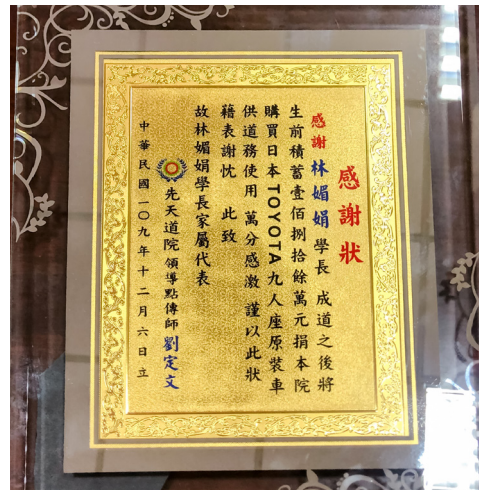 感謝狀
感謝 林媚娟 學長 成道之後將
生前積蓄壹佰捌拾餘萬元捐本院
購買日本TOYOTA九人座原裝車
供道務使用 萬分感激 謹以此狀
籍表謝忱 此致
故林媚娟學長家屬代表
先天道院 領導點傳師 劉定文
中華民國一〇九年十二月六日立